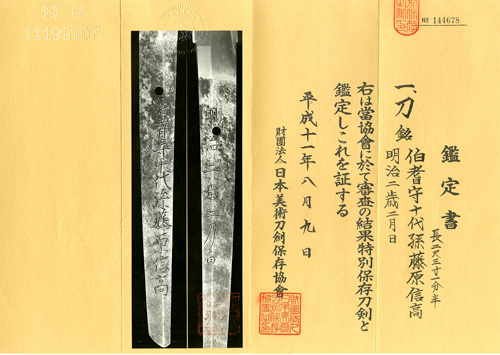 № 144678
鑑定書
一、刀 銘 伯耆守十代孫藤原信高
明治二歳二月日
長二尺三寸一分半
右は當協會に於て審査の結果特別保存刀剣と
鑑定しこれを証する
平成十一年八月九日
財團法人 日本美術刀劍保存協會
伯耆守十代孫藤原信高
明治二歳二月日